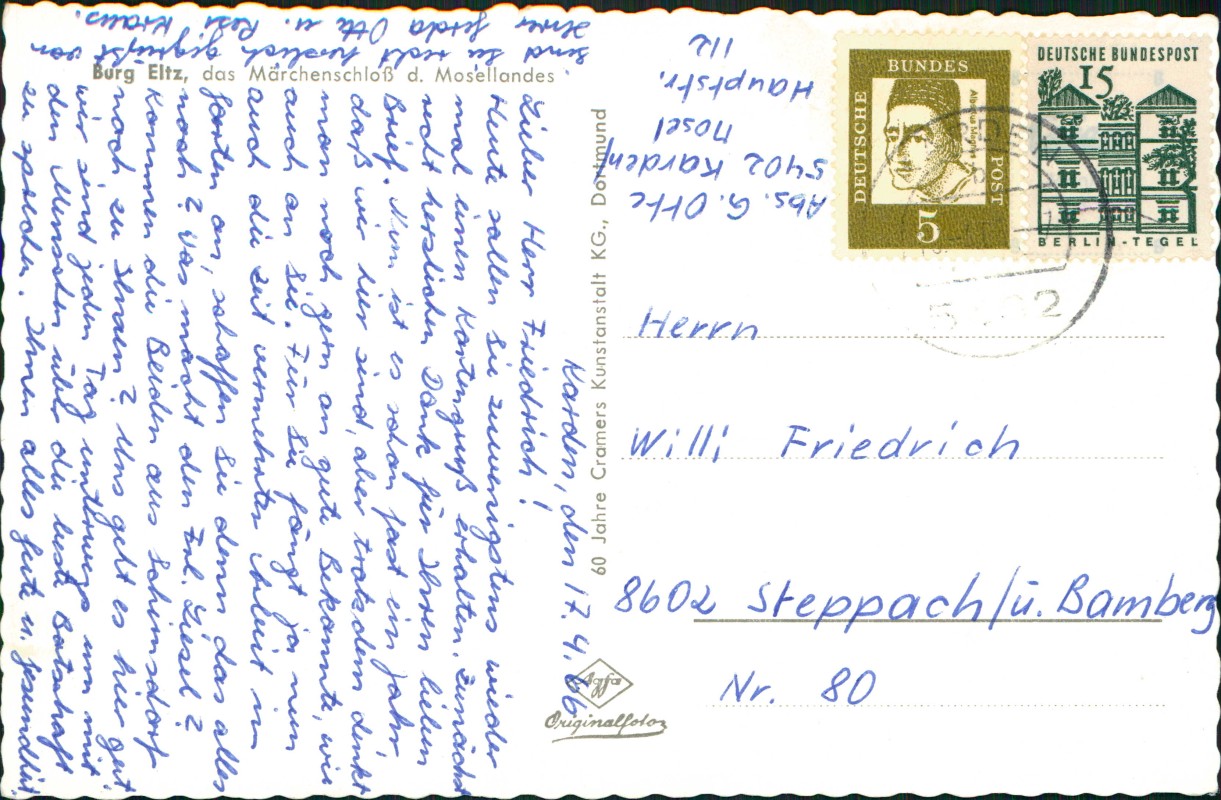 Burg Eltz, das Märchenschloß d. Mosellandes
Karden, den 17.4.66
Lieber Herr Friedrich!
Heute sollen sie zuwenigstens wieder
mal einen Kartengruß erhalten. Zunächst
recht herzlichen Dank für Ihren lieben
Brief. Nun ist es schon fast ein Jahr,
daß wir hier sind, aber trotzdem denkt
man noch gern an gute Bekannte, wie
auch an Sie. Für Sie fängt ja nun
auch die Zeit vermehrter Arbeit im
Garten an, schaffen Sie denn das alles
noch? Was macht den Frl. Liesel?
Kommen die Beiden aus Schirnsdorf
noch zu Ihnen? Uns geht es hier gut
wir sind jeden Tag unterwegs um mit
den Menschen über die beste Botschaft
zu sprechen. Ihnen alles gute u. Gesundheit
sind Sie recht herzlich gegrüßt von
Ihrer Gerda Otte u. Resi Kraus.
60 Jahre Cramers Kunstanstalt KG., Dortmund
Agfa
Originalfotos
Abs. G. Otte
5402 Karden/
Mosel
Hauptstr.
112
DEUTSCHE
BUNDES
POST
Albertus Magnus
5
DEUTSCHE BUNDESPOST
15
BERLIN-TEGEL
Herrn
Willi Friedrich
8602 Steppach/ü. Bamberg
Nr. 80